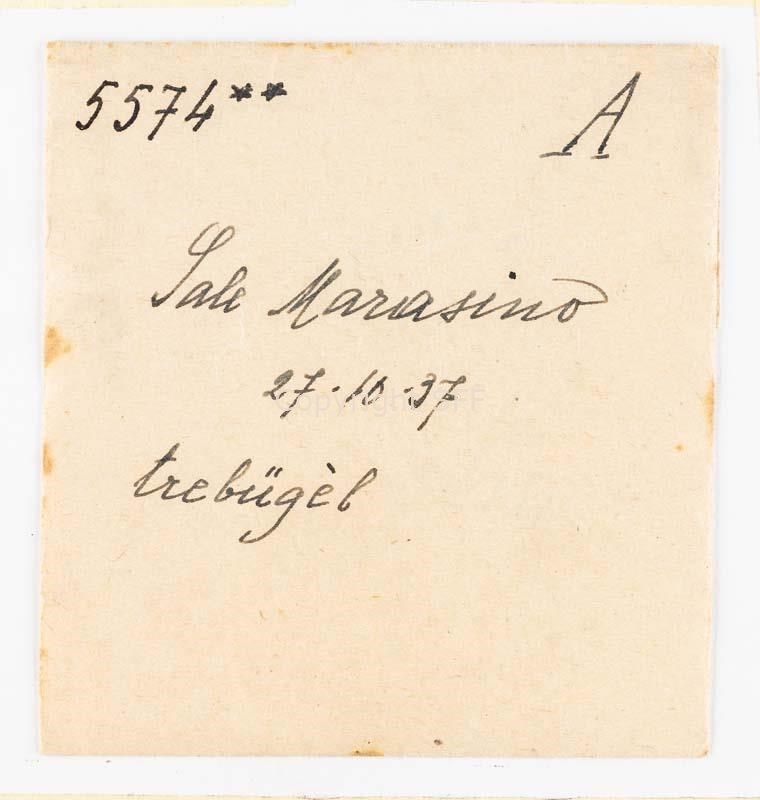 5574** A
Sale Marasino
27.10.37
trebügèl